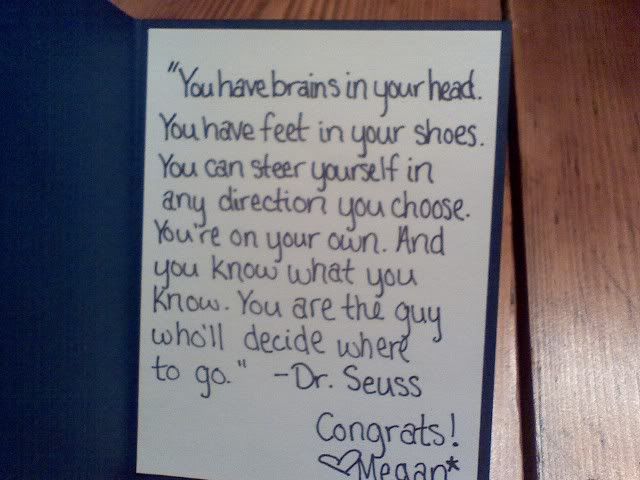 "You have brains in your head.
You have feet in your shoes.
You can steer yourself in
any direction you choose.
You're on your own. And
you know what you
know. You are the guy
who'll decide where
to go." -Dr. Seuss
Congrats!
♡Megan*